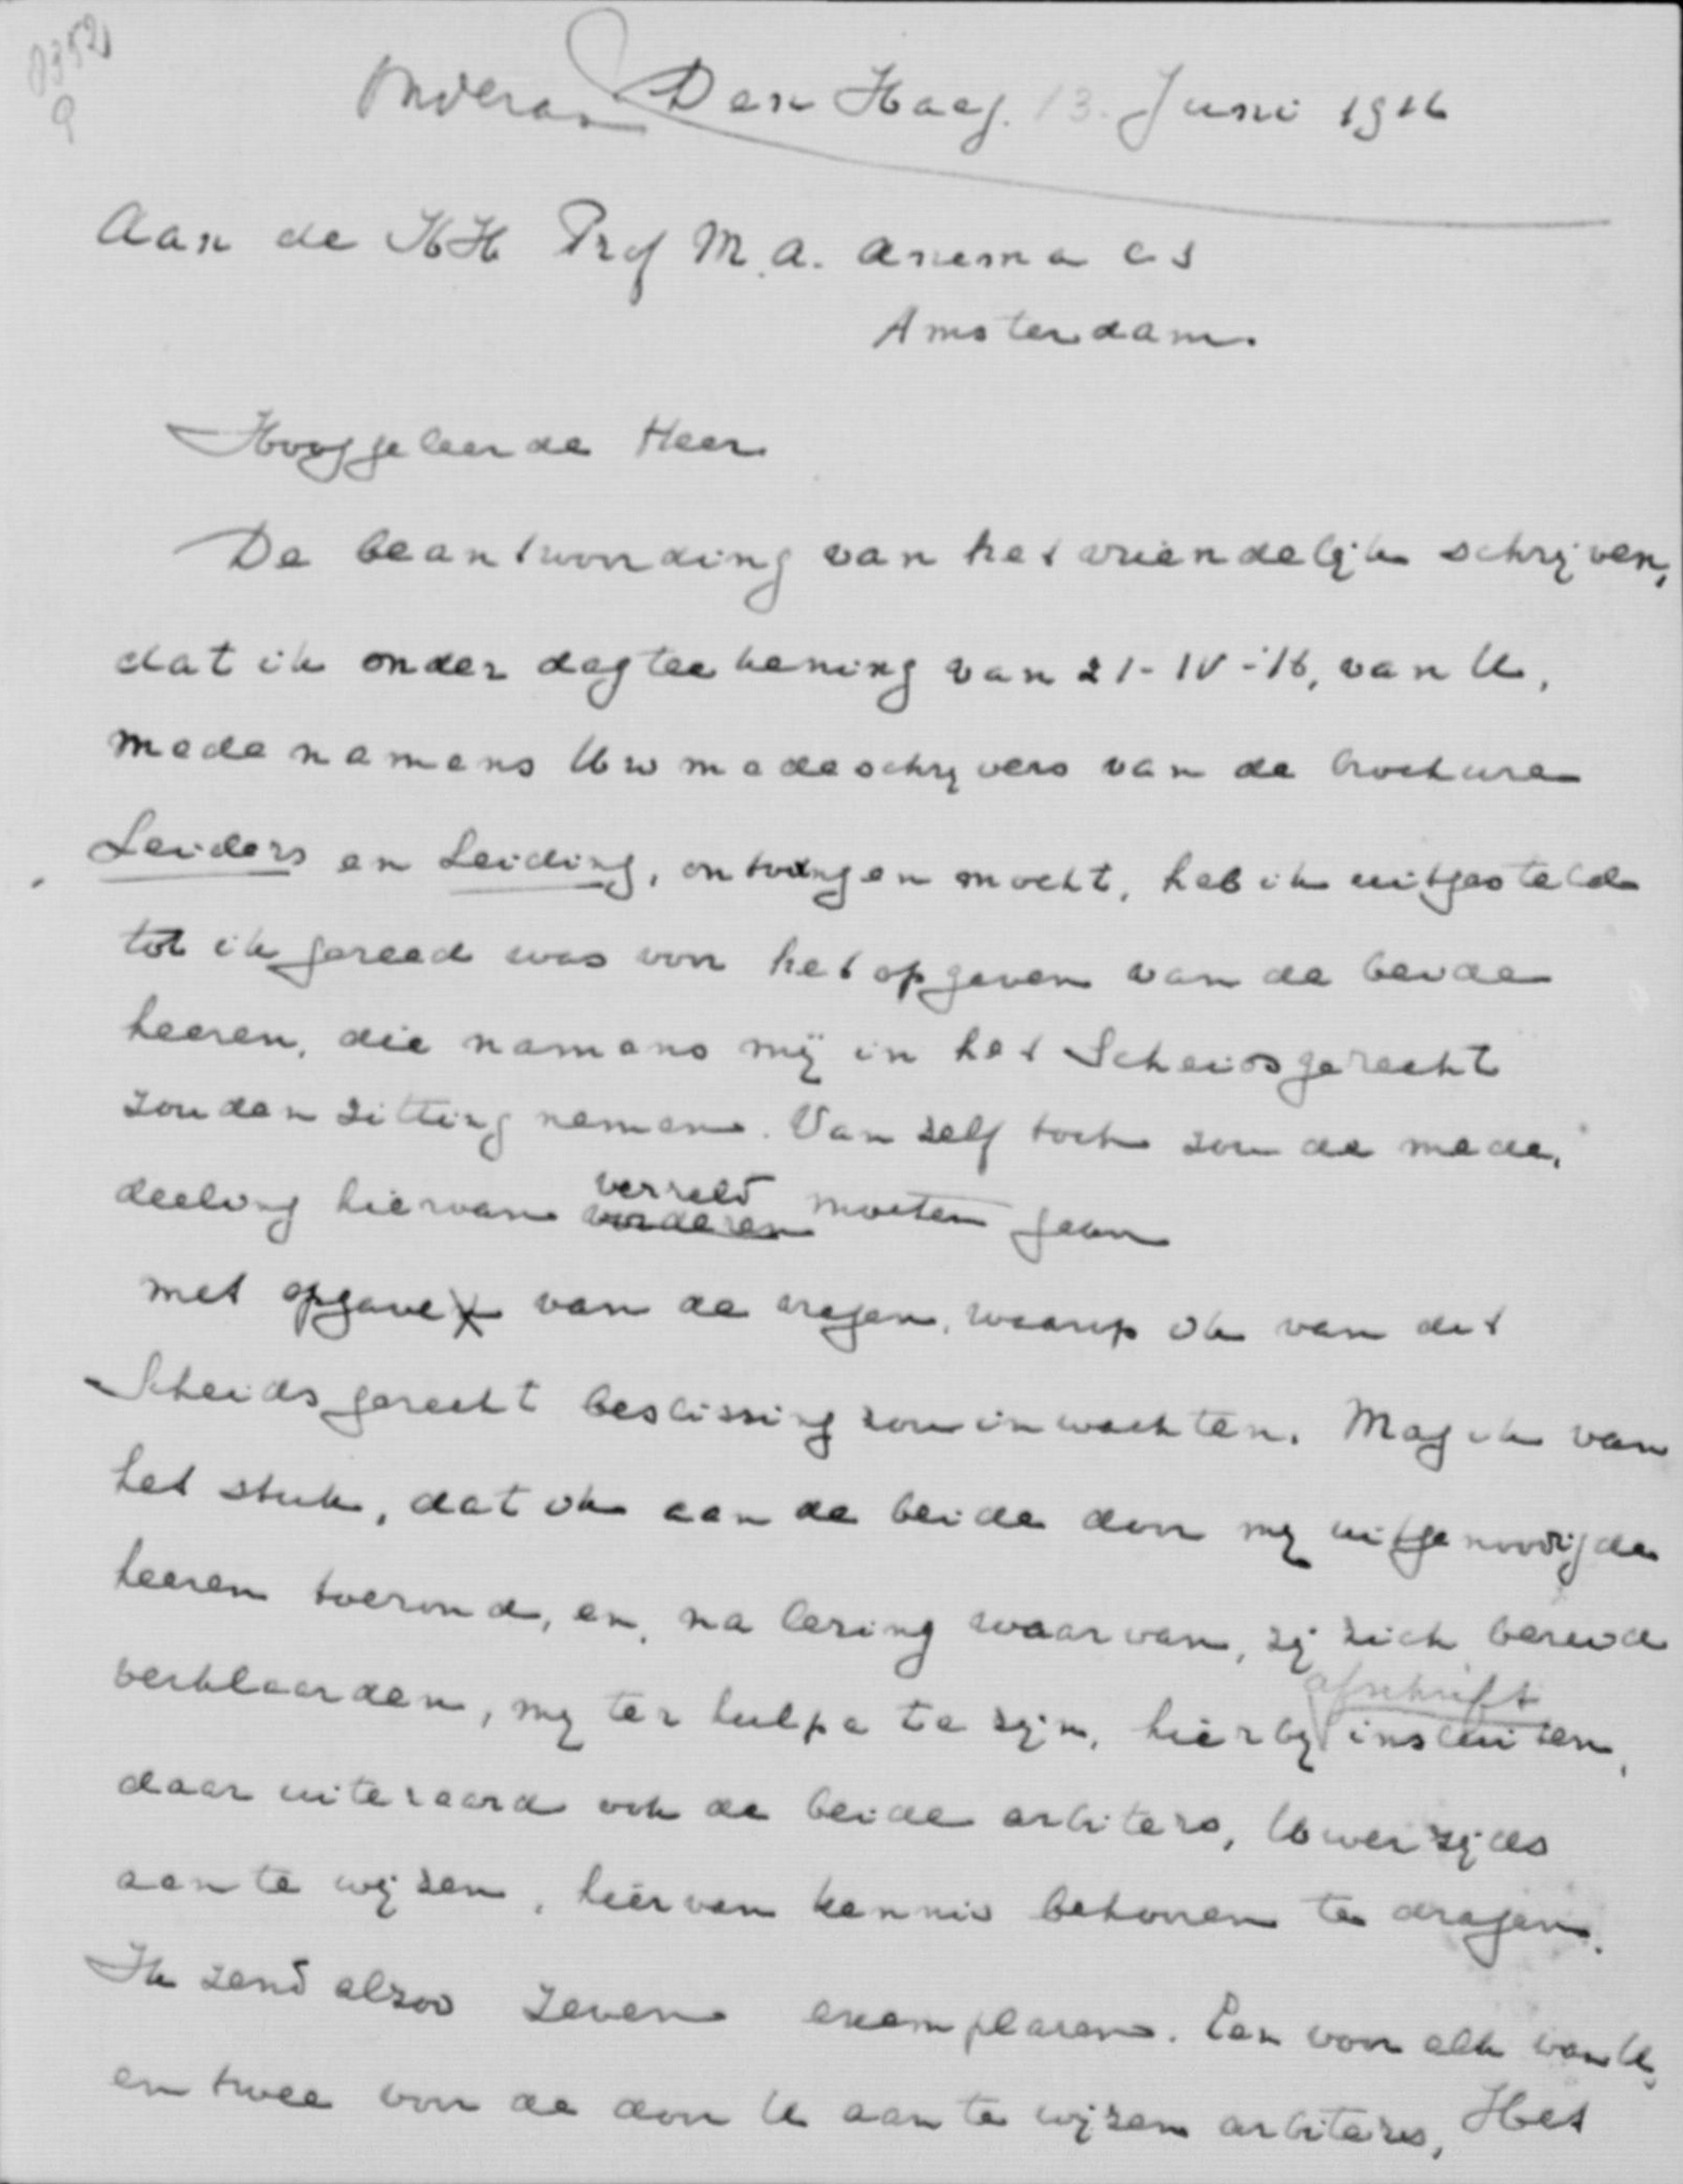 Den Haag. 13. Juni 1916
Aan de HH Prof M.A. Anema cs
Amsterdam.
Hooggeleerde Heer
De beantwoording van het vriendelijk schrijven,
dat ik onder dagteekening van 21-IV-'16, van U,
mede namens Uw medeschrijvers van de brochure
Leiders en Leiding, ontvangen mocht, heb ik uitgesteld
tot ik gereed was voor het opgeven van de beide
heeren, die namens mij in het Scheidsgerecht
zouden zitting nemen. Van zelf toch zou de mede,
deeling hiervan verzeld moeten gaan
met opgave van de vragen, waarop ik van dit
Scheidsgerecht beslissing zou inwachten. Mag ik van
het stuk, dat ik aan de beide door mij uitgenoodigde
heeren toezond, en, na lezing waarvan, zij zich bereid
verklaarden, mij ter hulpe te zijn, hierbij afschrift insluiten,
daar uiteraard ook de beide arbiters, Uwerzijds
aan te wijzen, hiervan kennis behooren te dragen.
Ik zend alzoo zeven exemplaren. Een voor elk van U,
en twee voor de door U aan te wijzen arbiters, Het